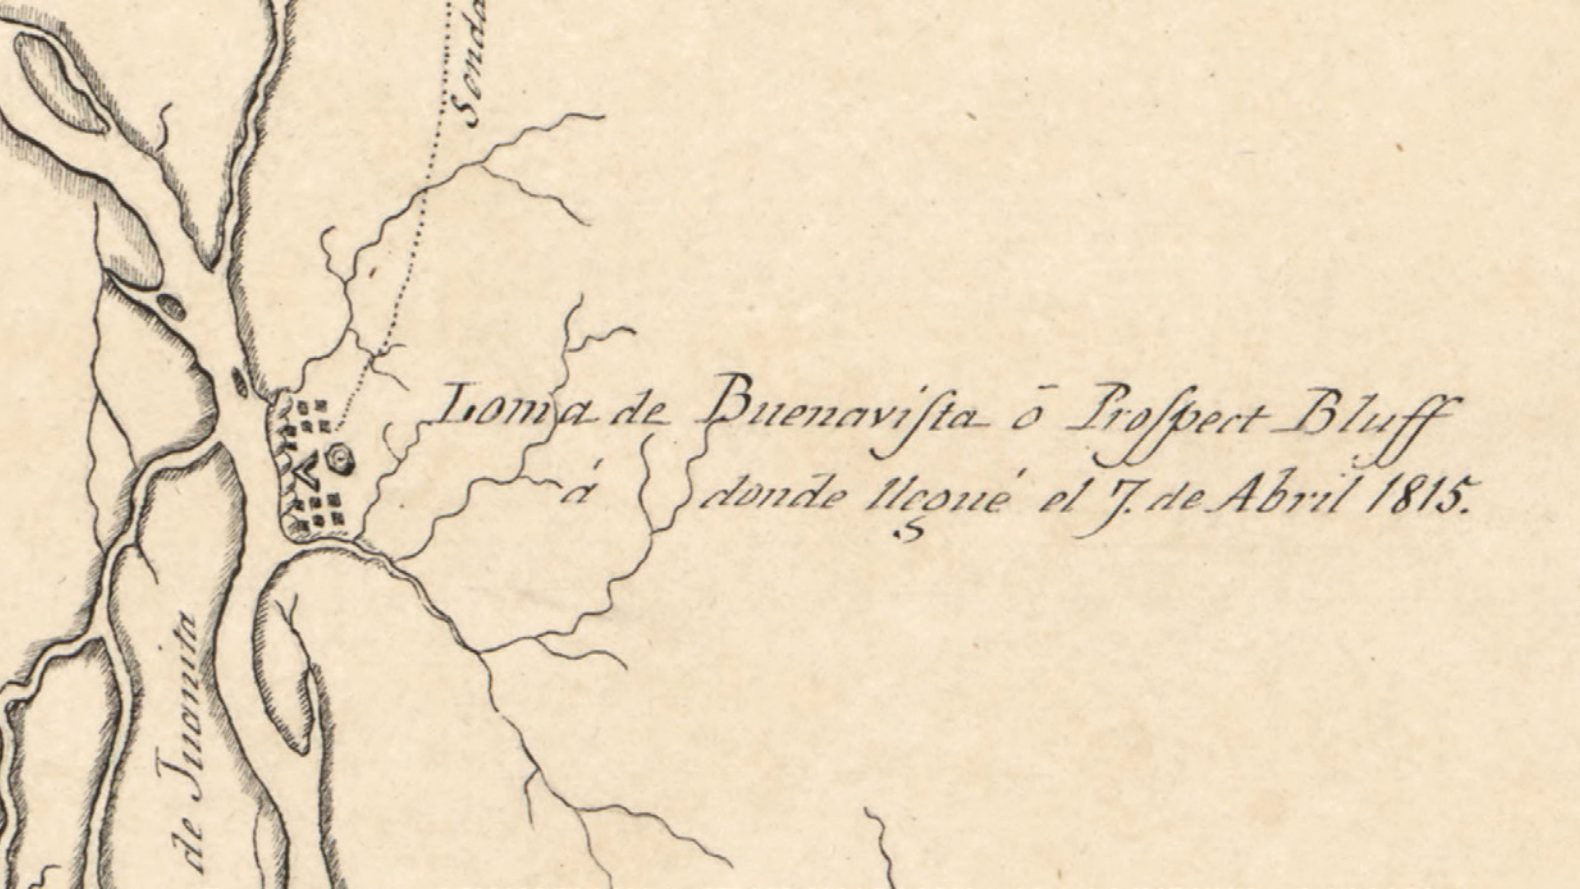 Senda
Loma de Buenaviſta ō Proſpect Bluff
á donde llegué el 7. de Abril 1815.
de Juanita